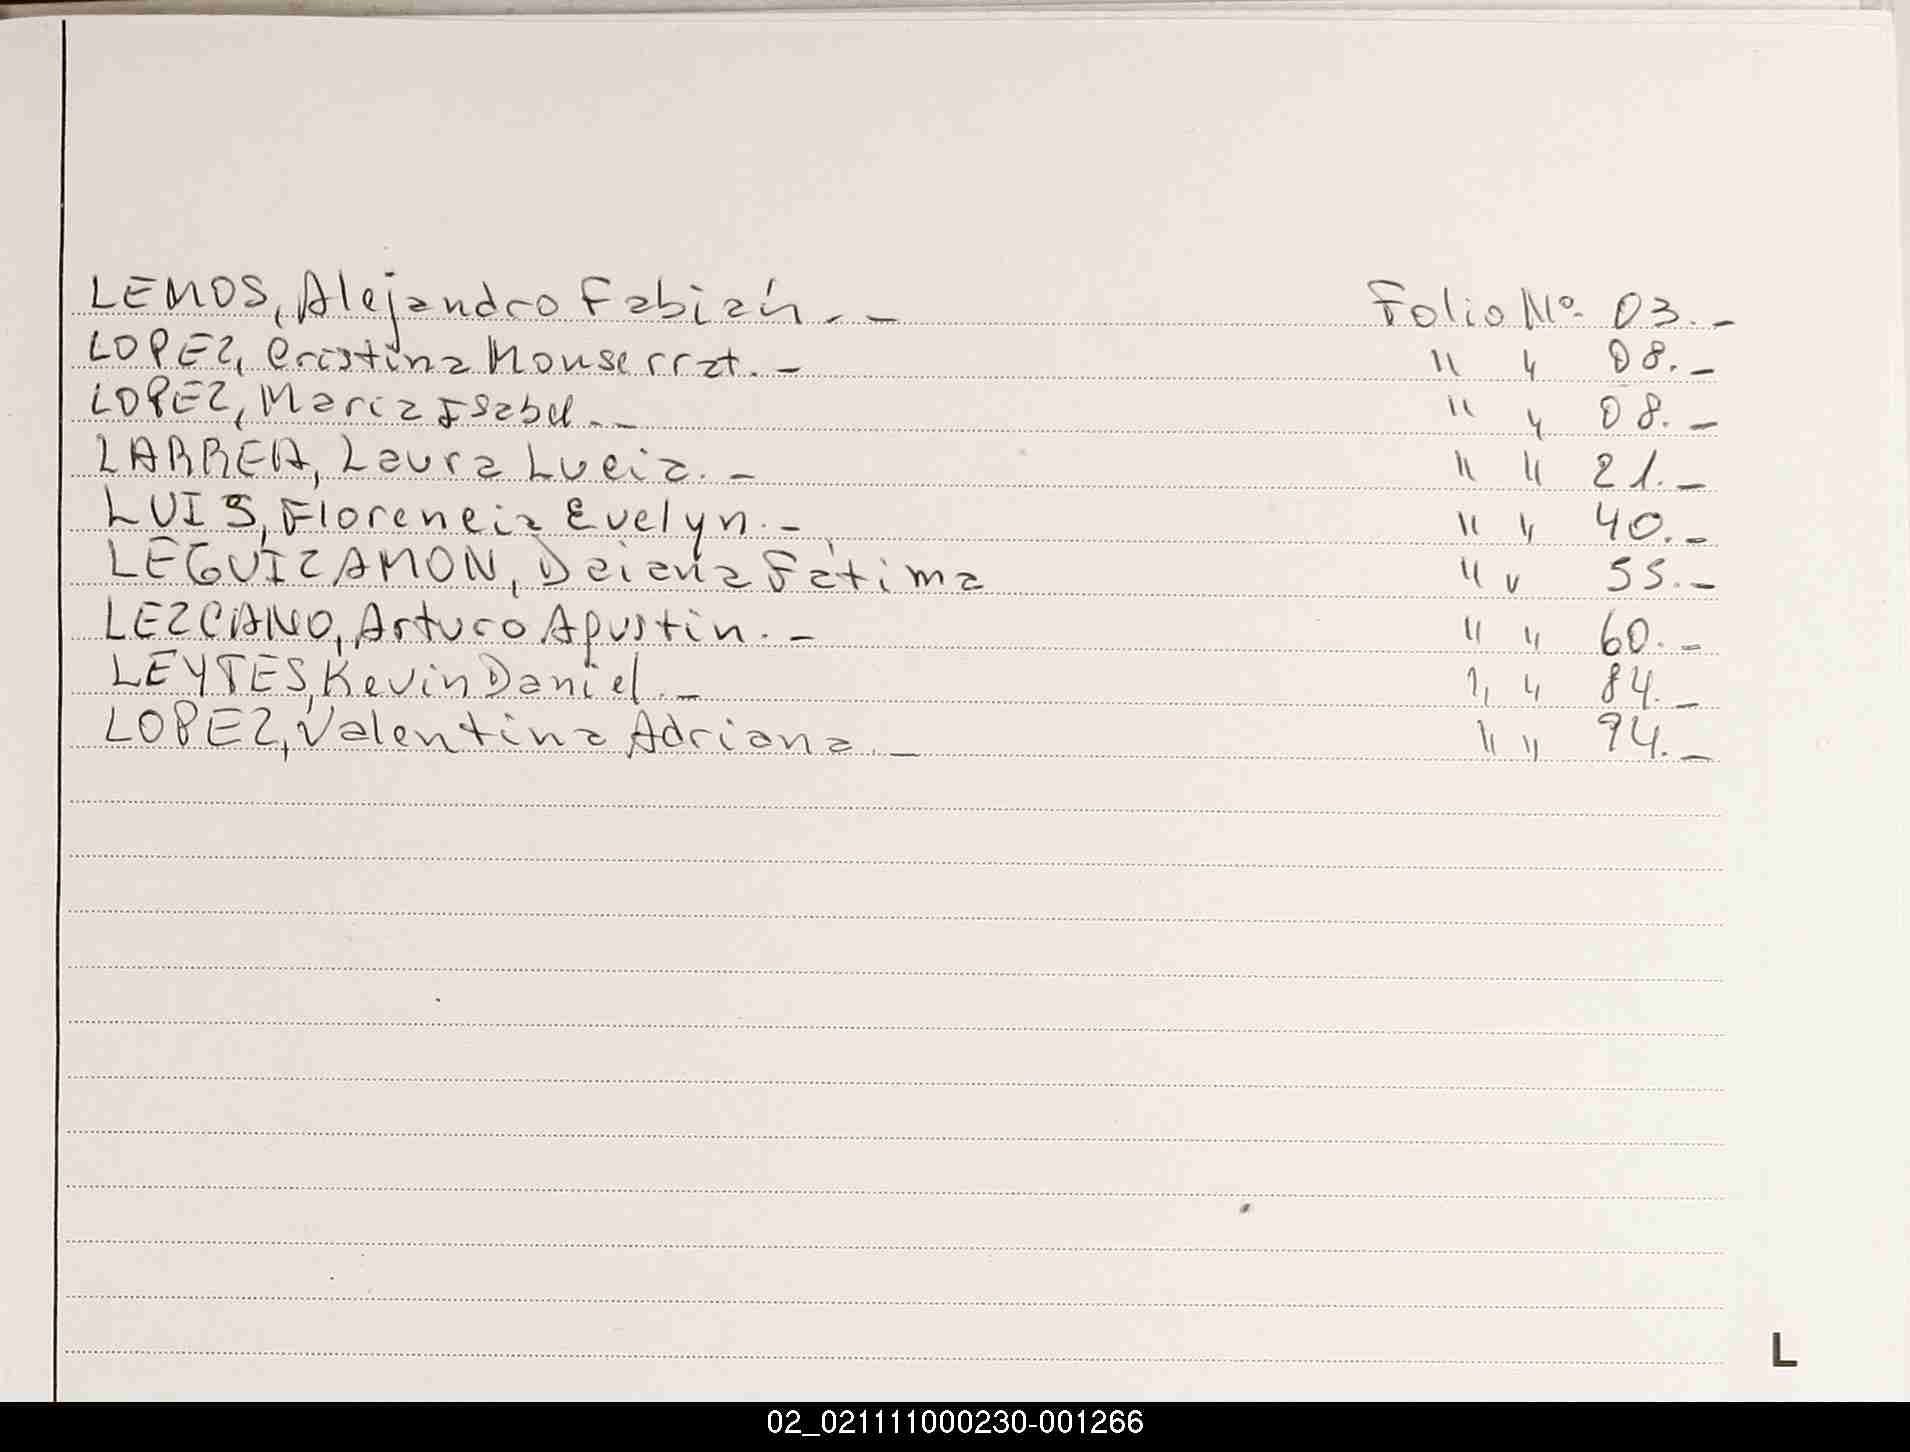 LEMOS, Alejandro Fabián. _ Folio Nº 03. _
LOPEZ, Cristina Monserrat. _ " " 08. _
LOPEZ, Maria Isabel. _ " " 08. _
LARREA, Laura Lucia. _ " " 21. _
LUIS, Florencia Evelyn. _ " " 40. _
LEGUIZAMON, Daiana Fátima " " 55. _
LEZCANO, Arturo Agustin. _ " " 60. _
LEYTES, Kevin Daniel. _ " " 84. _
LOPEZ, Valentina Adriana. _ " " 94. _
L
02_021111000230-001266